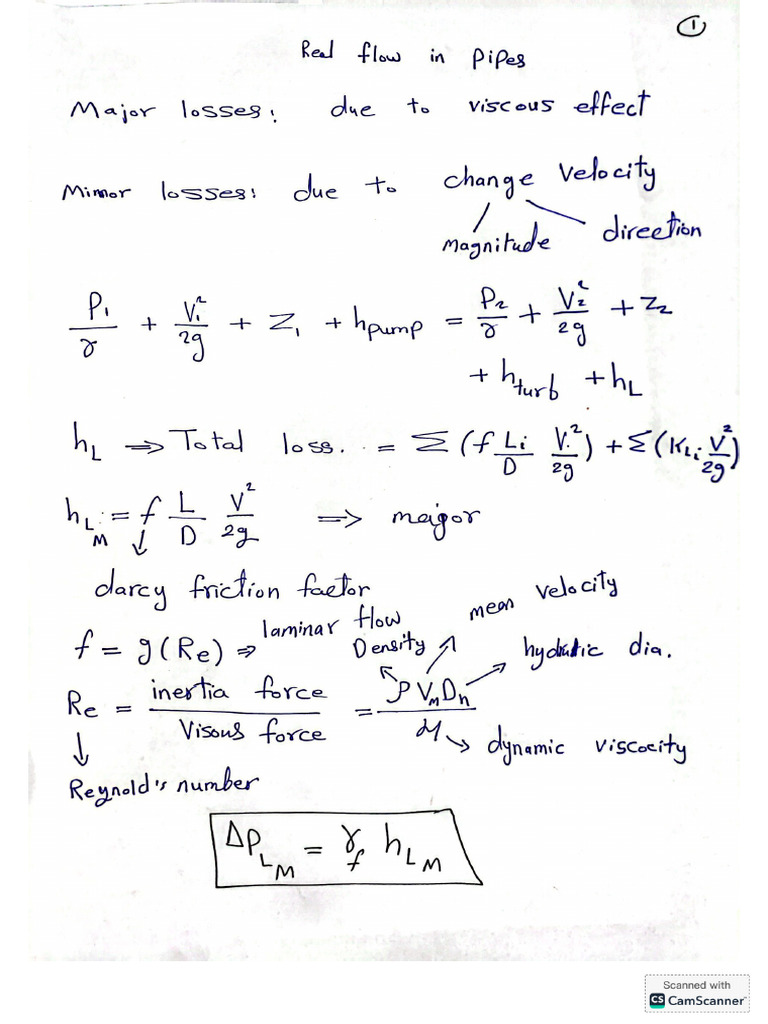 ①
Real flow in pipes
Major losses: due to viscous effect
Minor losses: due to change velocity
magnitude direction
P₁/γ + V₁²/2g + Z₁ + h_pump = P₂/γ + V₂²/2g + Z₂
+ h_turb + h_L
h_L ⇒ Total loss. = Σ (f Li/D V.²/2g) + Σ (K_Li V²/2g)
h_L_M = f L/D V²/2g ⇒ major
↓
darcy friction factor
f = g(Re) ⇒ laminar flow
Density mean velocity
hydralic dia.
Re = inertia force / Visous force = ρ V_m D_h / μ
→ dynamic viscocity
↓
Reynold's number
ΔP_L_M = γ_f h_L_M
Scanned with
CS CamScanner